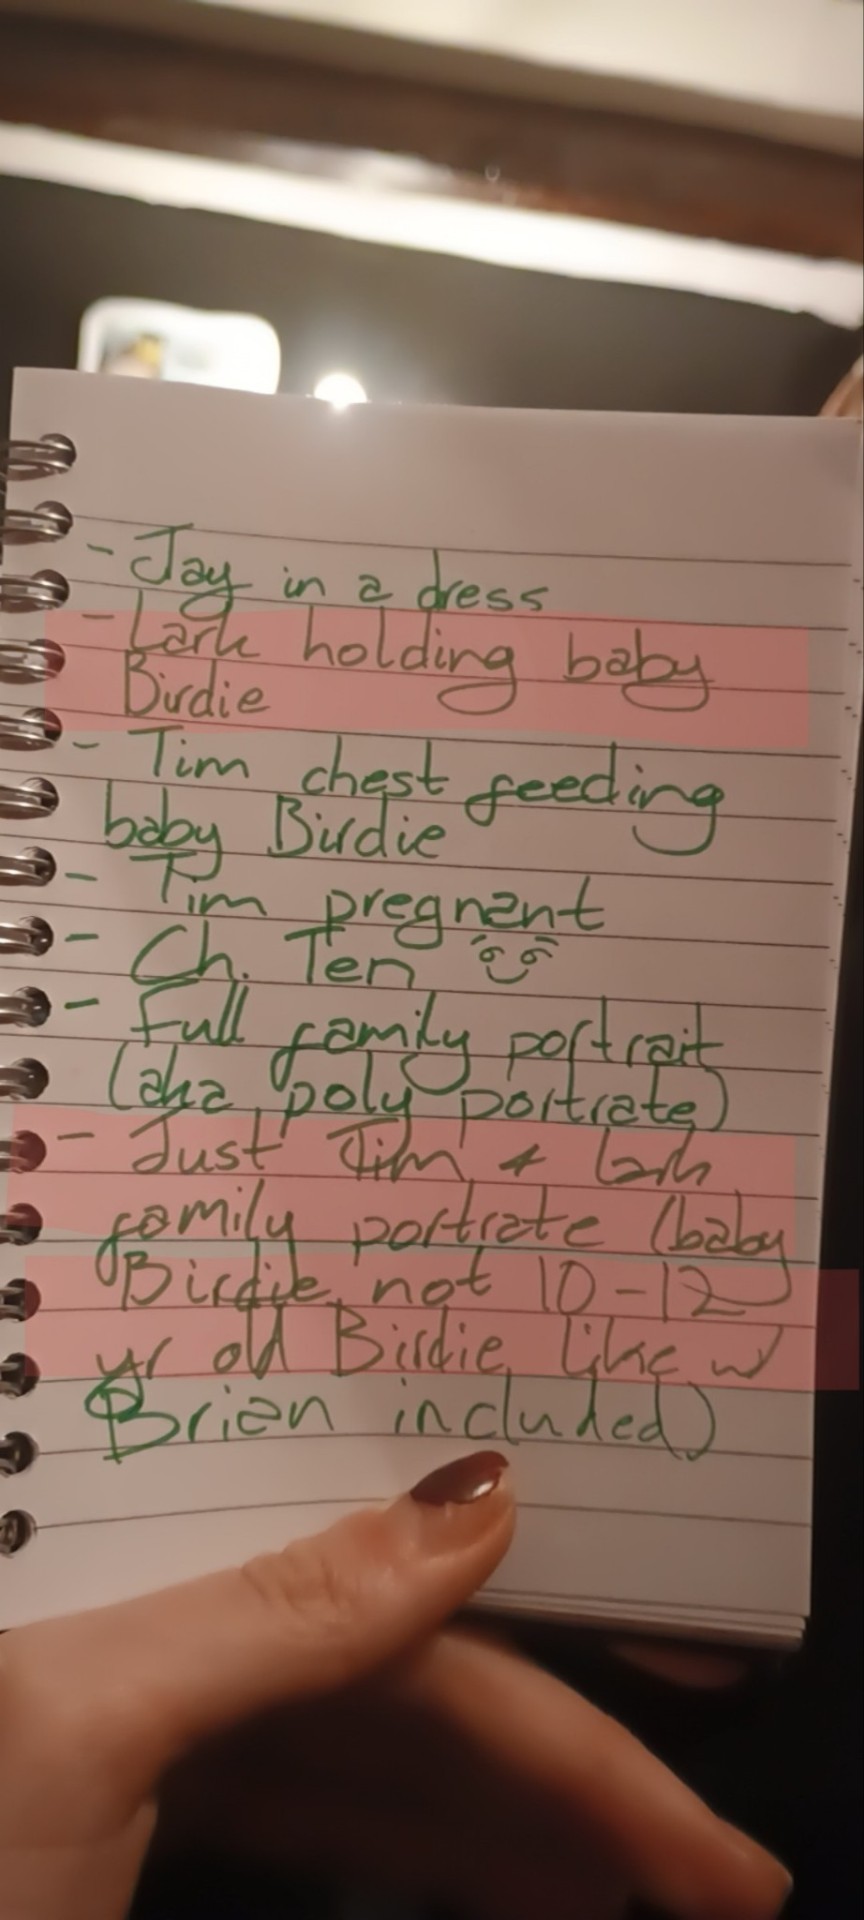 - Jay in a dress
- Lark holding baby
Birdie
- Tim chest feeding
baby Birdie
- Tim pregnant
- Ch. Ten
- Full family portrait
(aka poly portrate)
- Just Tim + Lark
family portrate (baby
Birdie not 10-12
yr old Birdie like w/
Brian included)